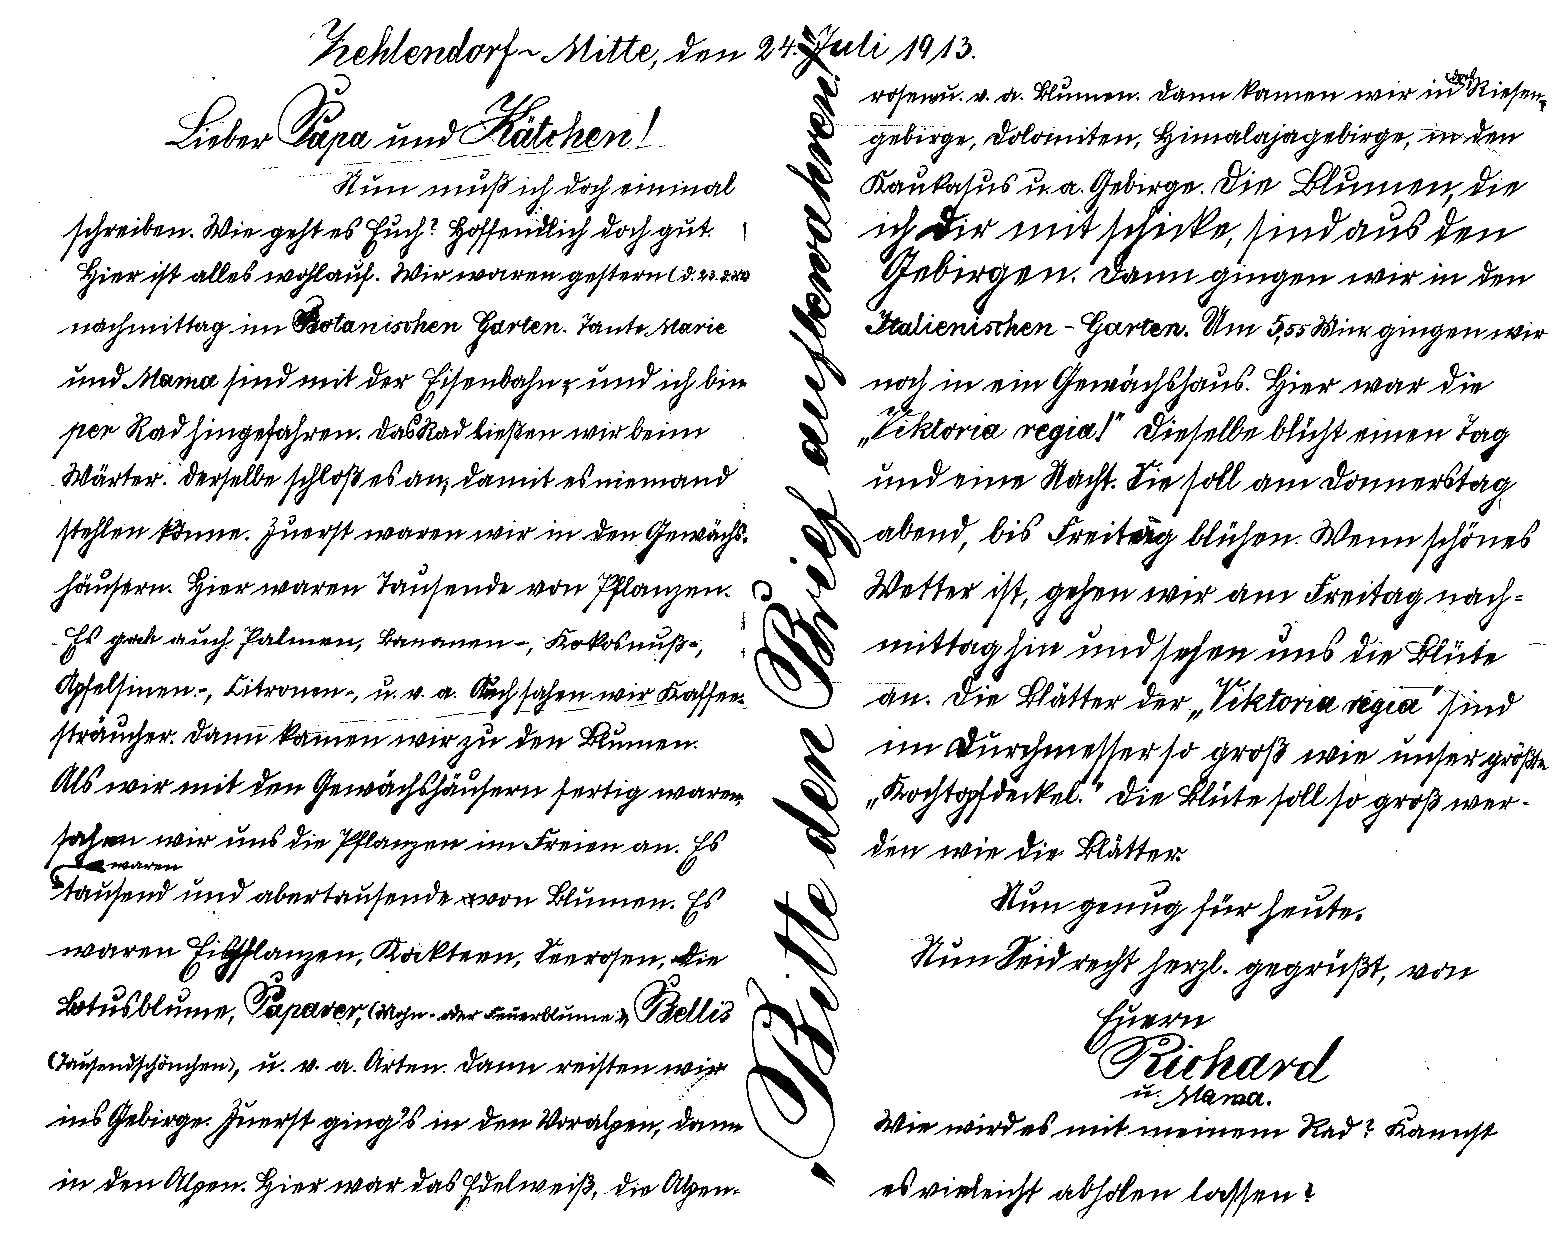 Zehlendorf-Mitte, den 24. Juli 1913.
Lieber Papa und Kätchen!
Nun muß ich doch eininal
schreiben. Wie geht es Euch? Hoffendlich doch gut.
Hier ist alles wohlauf. Wir waren gestern (d. 23.
nachmittag im Botanischen Garten. Tante Marie
und Mama sind mit der Eisenbahn, und ich bin
per Rad hingefahren. Das Rad ließen wir beim
Wärter. Derselbe schloß es an, damit es niemand
stehlen könne. Zuerst waren wir in den Gewächs-
häusern. Hier waren Tausende von Pflanzen.
Es gab auch Palmen, Bananen-, Kokosnuß-,
Apfelsinen-, Citronen-, u. v. a. Auch sahen wir Kaffee-
sträucher. Dann kamen wir zu den Blumen.
Als wir mit den Gewächshäusern fertig waren,
sahen wir uns die Pflanzen im Freien an. Es
waren
tausend und abertausende von Blumen. Es
waren Eispflanzen, Kakteen, Seerosen, die
Lotusblume, Papaver, (Mohn- oder Feuerblume), Bellis
(Tausendschönchen), u. v. a. Arten. Dann reisten wir
ins Gebirge. Zuerst ging's in den Voralpen, dann
in den Alpen. Hier war das Edelweiß, die Alpen-
„Bitte den Brief aufbewahren!"
rosen u. v. a. Blumen. Dann kamen wir in das Riesen-
gebirge, Dolomiten, Himalajagebirge, in den
Kaukasus u. a. Gebirge. Die Blumen, die
ich Dir mit schicke, sind aus den
Gebirgen. Dann gingen wir in den
Italienischen-Garten. Um 5,55 gingen wir
noch in ein Gewächshaus. Hier war die
„Viktoria regia!" Dieselbe blüht einen Tag
und eine Nacht. Sie soll am Donnerstag
abend, bis Freitag blühen. Wenn schönes
Wetter ist, gehen wir am Freitag nach-
mittag hin und sehen uns die Blüte
an. Die Blätter der „Viktoria regia" sind
im Durchmesser so groß wie unser größte
„Kochtopfdeckel." Die Blüte soll so groß wer-
den wie die Blätter.
Nun genug für heute.
Nun Seid recht herzl. gegrüßt, von
Euern
Richard
u. Mama.
Wie wird es mit meinem Rad? Kannst
es vieleicht abholen lassen?